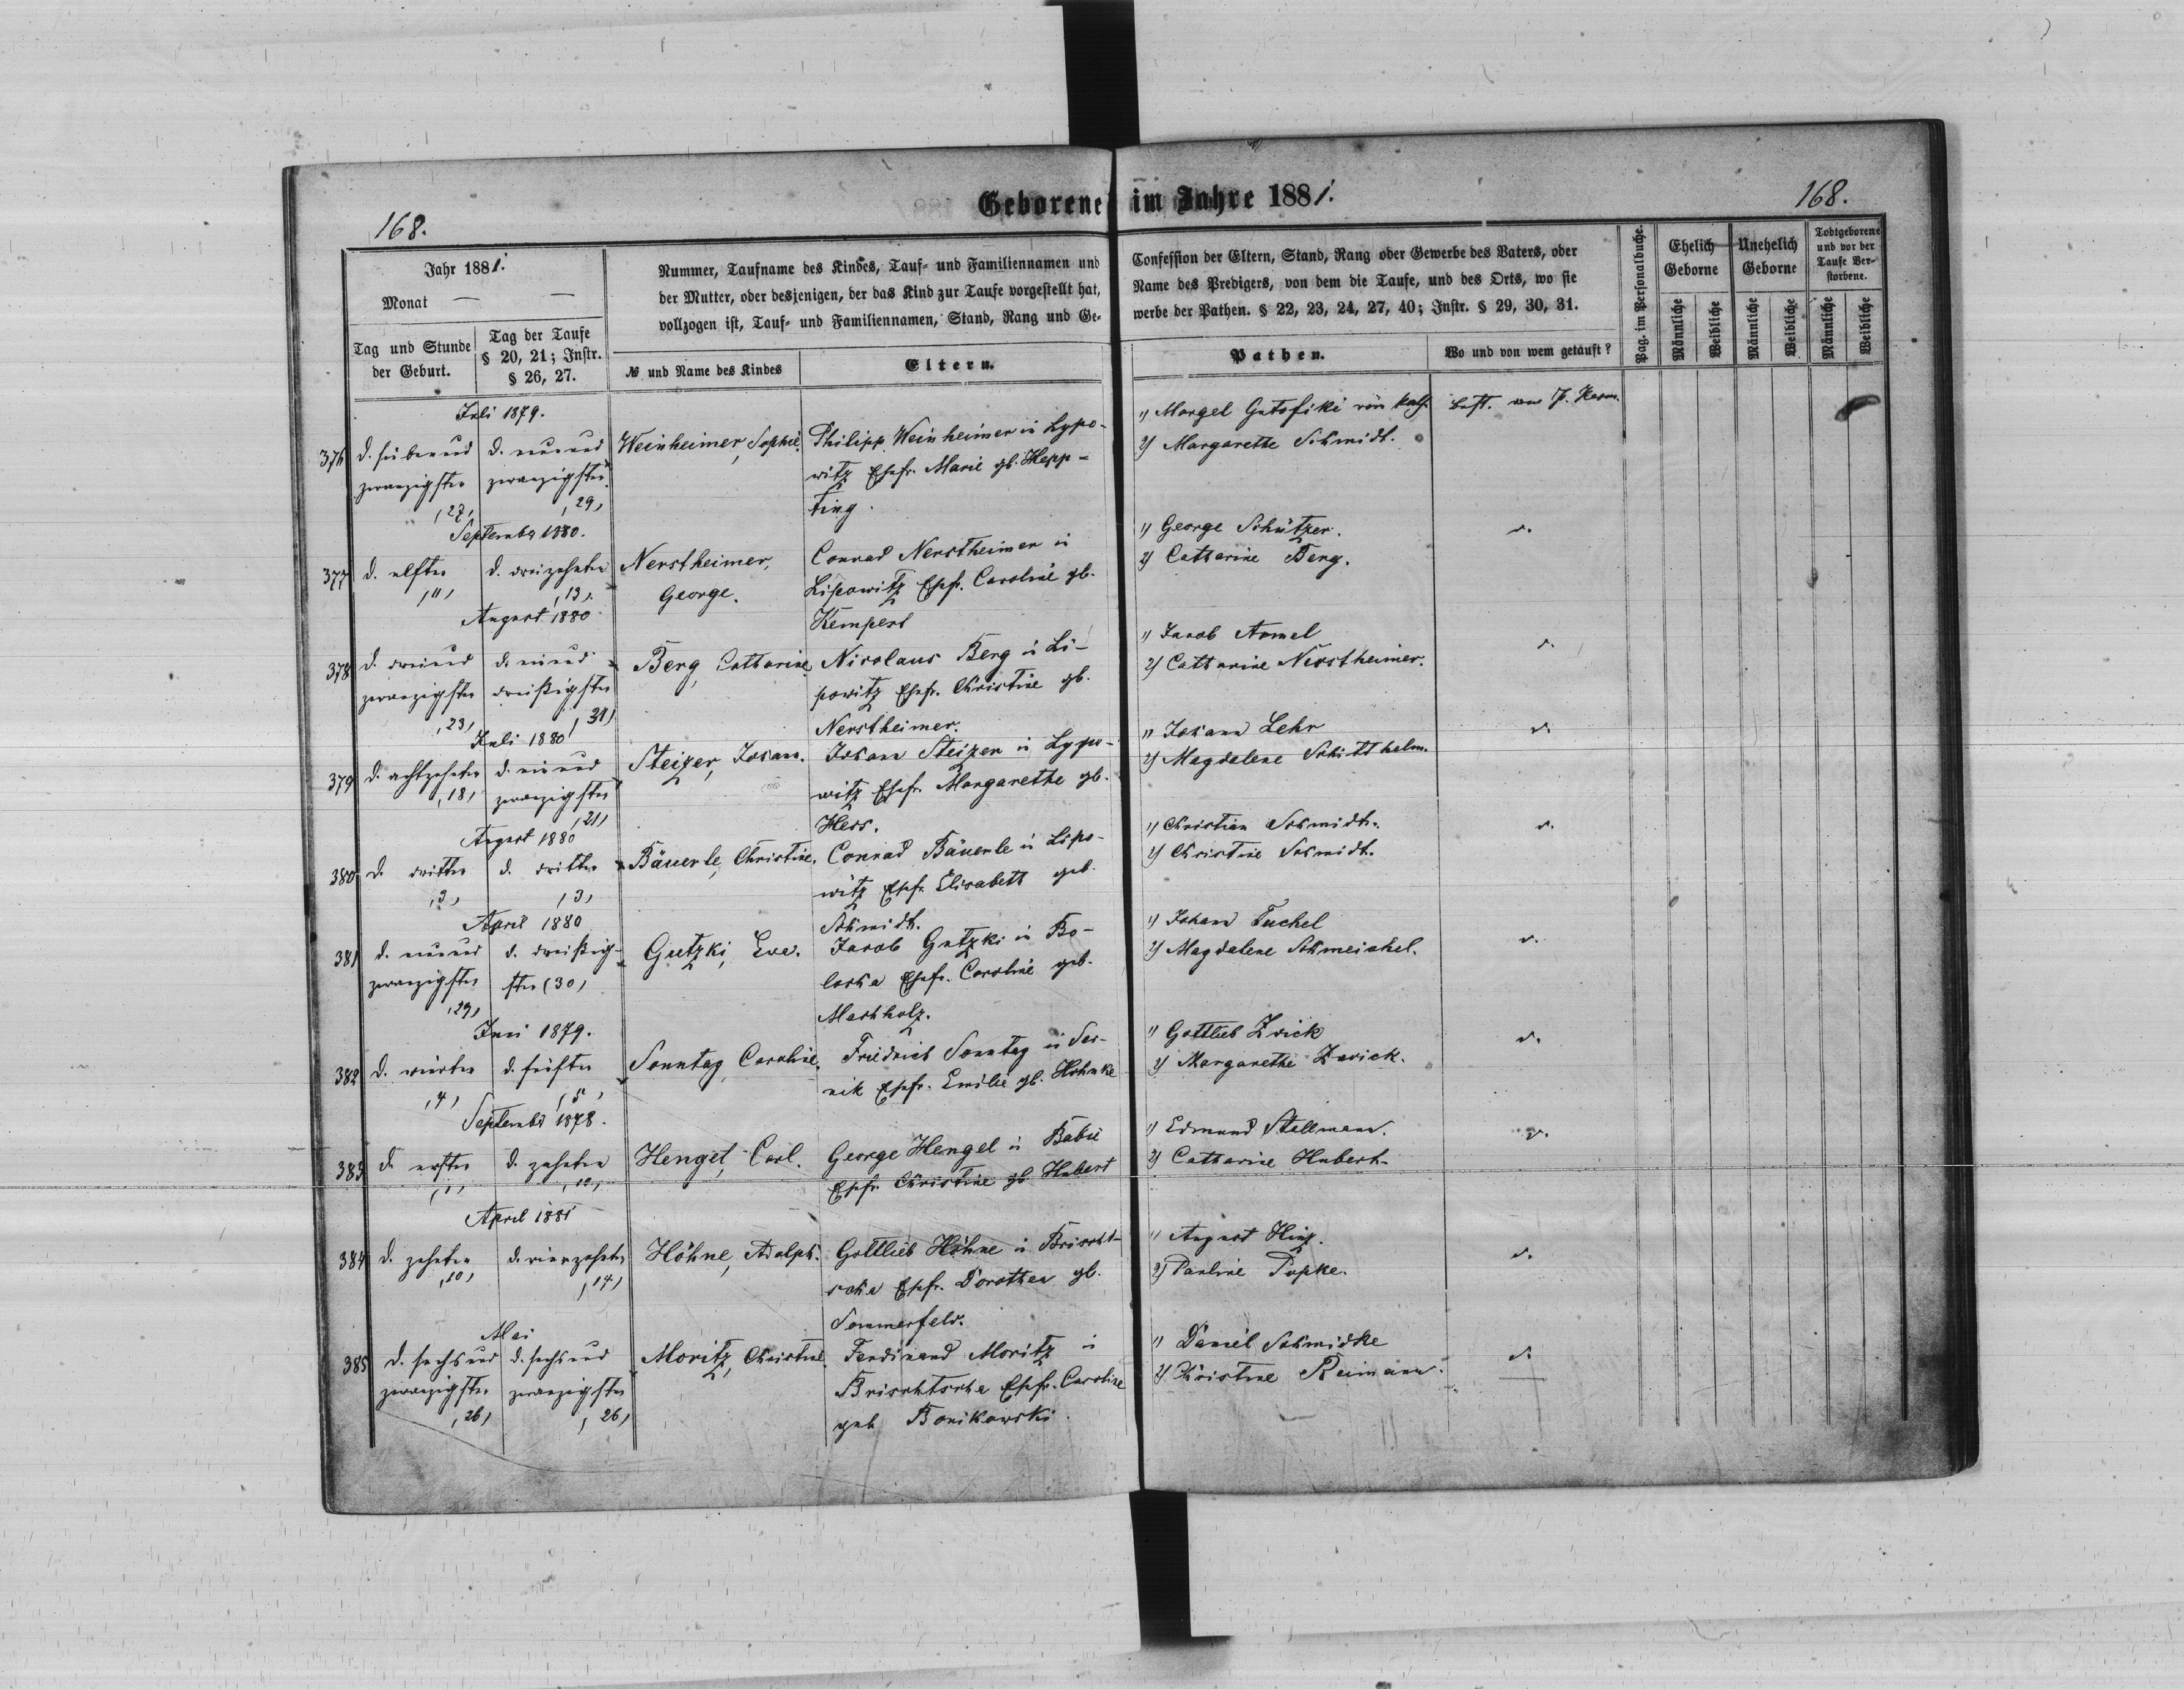 168.
Geborene im Jahre 1881.
168.
Jahr 1881.
Monat — —
Tag und Stunde der Geburt.
Tag der Taufe § 20, 21; Instr. § 26, 27.
Nummer, Taufname des Kindes, Tauf- und Familiennamen und
der Mutter, oder desjenigen, der das Kind zur Taufe vorgestellt hat,
vollzogen ist, Tauf- und Familiennamen, Stand, Rang und Ge-
№ und Name des Kindes
Eltern.
Confession der Eltern, Stand, Rang oder Gewerbe des Vaters, oder
Name des Predigers, von dem die Taufe, und des Orts, wo sie
werbe der Pathen. § 22, 23, 24, 27, 40; Instr. § 29, 30, 31.
Pathen.
Wo und von wem getauft?
Pag. im Personalbuche.
Ehelich Geborne
Unehelich Geborne
Todtgeborene und vor der Taufe Verstorbene.
Männliche
Weibliche
Männliche
Weibliche
Männliche
Weibliche
Juli 1879.
376 d. sieben und d. neun und Weinheimer, Sophie. Philipp Weinheimer in Lypo- 1) Margel
zwanzigsten zwanzigsten witz Ehefr. Marie gb. Hepp- 2) Margarethe Schmidt.
(27) (29) ting.
September 1880.
377 d. elften d. dreizehnten Nerstheimer, Conrad Nerstheimer in 1) George Schützer. d.
(11) (13) George. Lipowitz Ehefr. Caroline gb. 2) Catharine Berg.
August 1880 Kempert
378 d. drei und d. ein und Berg, Catharine. Nicolaus Berg in Li- 1) Jacob d.
zwanzigsten dreißigsten powitz Ehefr. Christine gb. 2) Catharine Nerstheimer.
(23) (31) Nerstheimer.
Juli 1880
379 d. achtzehnten d. ein und Steizer, Johann. Johann Steizer in Lypo- 1) Johann Lehr d.
(18) zwanzigsten witz Ehefr. Margarethe gb. 2) Magdalene Schitthelm.
(21) Hess.
August 1880
380 d. dritten d. dritten Bäuerle, Christine. Conrad Bäuerle in Lipo- 1) Christian Schmidt. d.
(3) (3) witz Ehefr. Elisabeth geb. 2) Christine Schmidt.
April 1880 Schmidt.
381 d. neun und d. dreißig- Gutzki, Eva. Jacob Gutzki in Bo- 1) Johann Tuchel d.
zwanzigsten sten (30) Ehefr. Caroline geb. 2) Magdalene Schmeichel.
(29) Machholz.
Juni 1879.
382 d. vierten d. fünften Sonntag, Caroline. Friedrich Sonntag in Ser- 1) Gottlieb Zwick d.
(4) (5) nik Ehefr. Emilie gb. Hohnke 2) Margarethe Zwick.
September 1878.
383 d. ersten d. zehnten Hengel, Carl. George Hengel in Babie 1) Edmund Stellmann. d.
(1) (10) Ehefr. Christine gb. Hubert 2) Catharine Hubert.
April 1881
384 d. zehnten d. vierzehnten Höhne, Adolph. Gottlieb Höhne in Brischt- 1) August Hinz. d.
(10) (14) scha Ehefr. Dorothea gb. 2) Pauline Popke.
Sommerfeld.
Mai
385 d. sechs und d. sechs und Moritz, Christine. Ferdinand Moritz in 1) Daniel Schmidke d.
zwanzigsten zwanzigsten Brischtscha Ehefr. Caroline 2) Christine Reimann.
(26) (26) geb. Bonikowski.